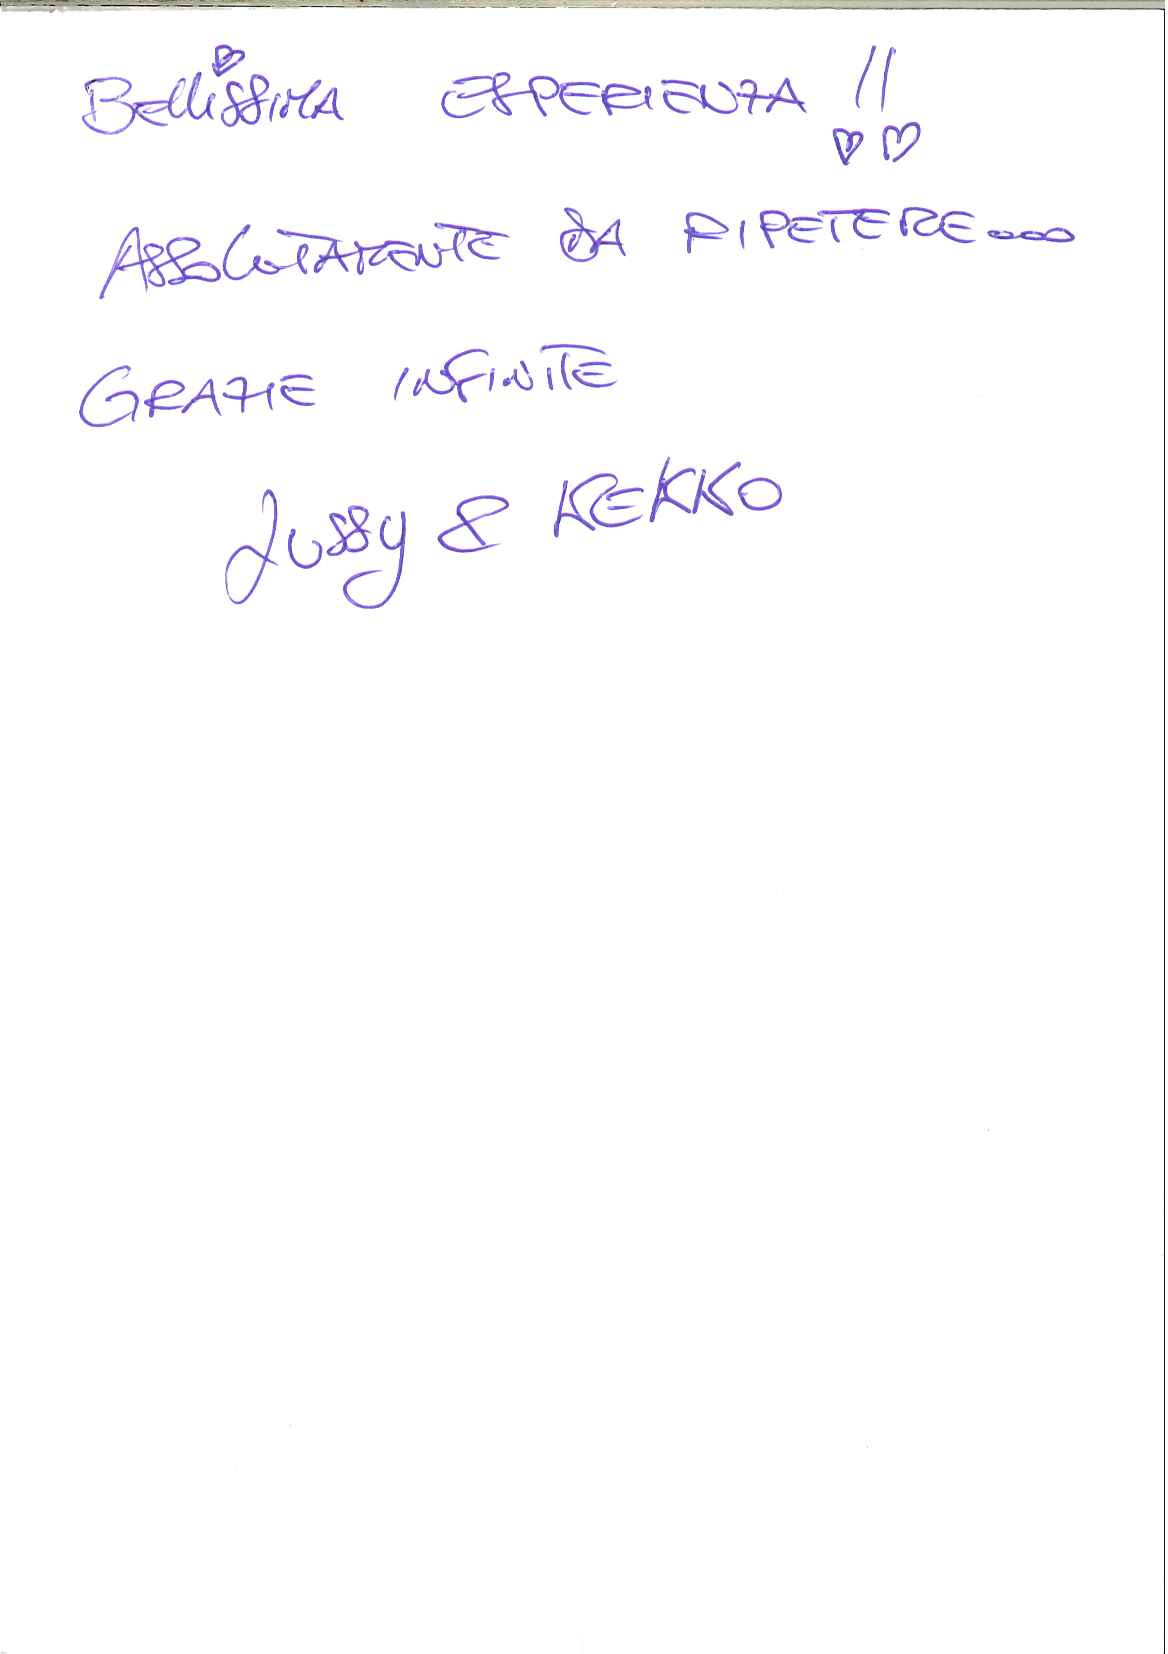 BELLISSIMA ESPERIENZA !!
ASSOLUTAMENTE DA RIPETERE....
GRAZIE INFINITE
Jussy & KEKKO